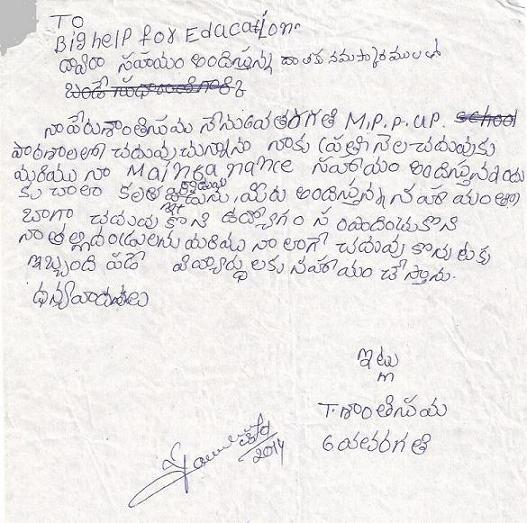 TO
Big help for Education
ద్వారా సహాయం అందిస్తున్న దాతకు నమస్కారములతో
నా పేరు శాంతిప్రియ నేను 6వ తరగతి M.P.P. UP. school
పాఠశాలలో చదువుచున్నాను నాకు ప్రతి నెల చదువుకు
మరియు నా Mainganance సహాయం అందిస్తున్నందు
కు చాలా కృతజ్ఞతలు, మీరు అందిస్తున్న సహాయంతో
బాగా చదువుకొని ఉద్యోగం సంపాదించుకొని
నా తల్లిదండ్రులను మరియు నా లాగే చదువు కొనుటకు
ఇబ్బంది పడే విద్యార్థులకు సహాయం చేస్తాను.
ధన్యవాదములు
ఇట్లు
T. శాంతిప్రియ
6 యవతరగతి
2014